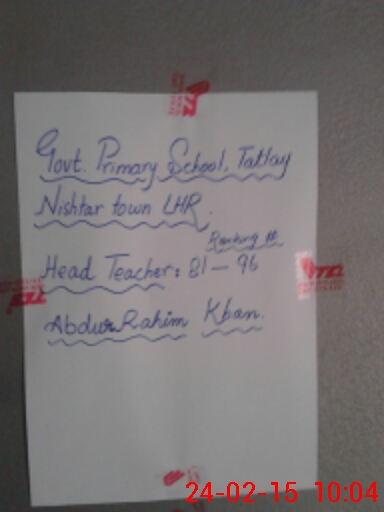 Govt. Primary School, Tatlay
Nishtar town LHR.
Ranking #
Head Teacher: 81 — 96
Abdur Rahim Khan.
24-02-15 10:04